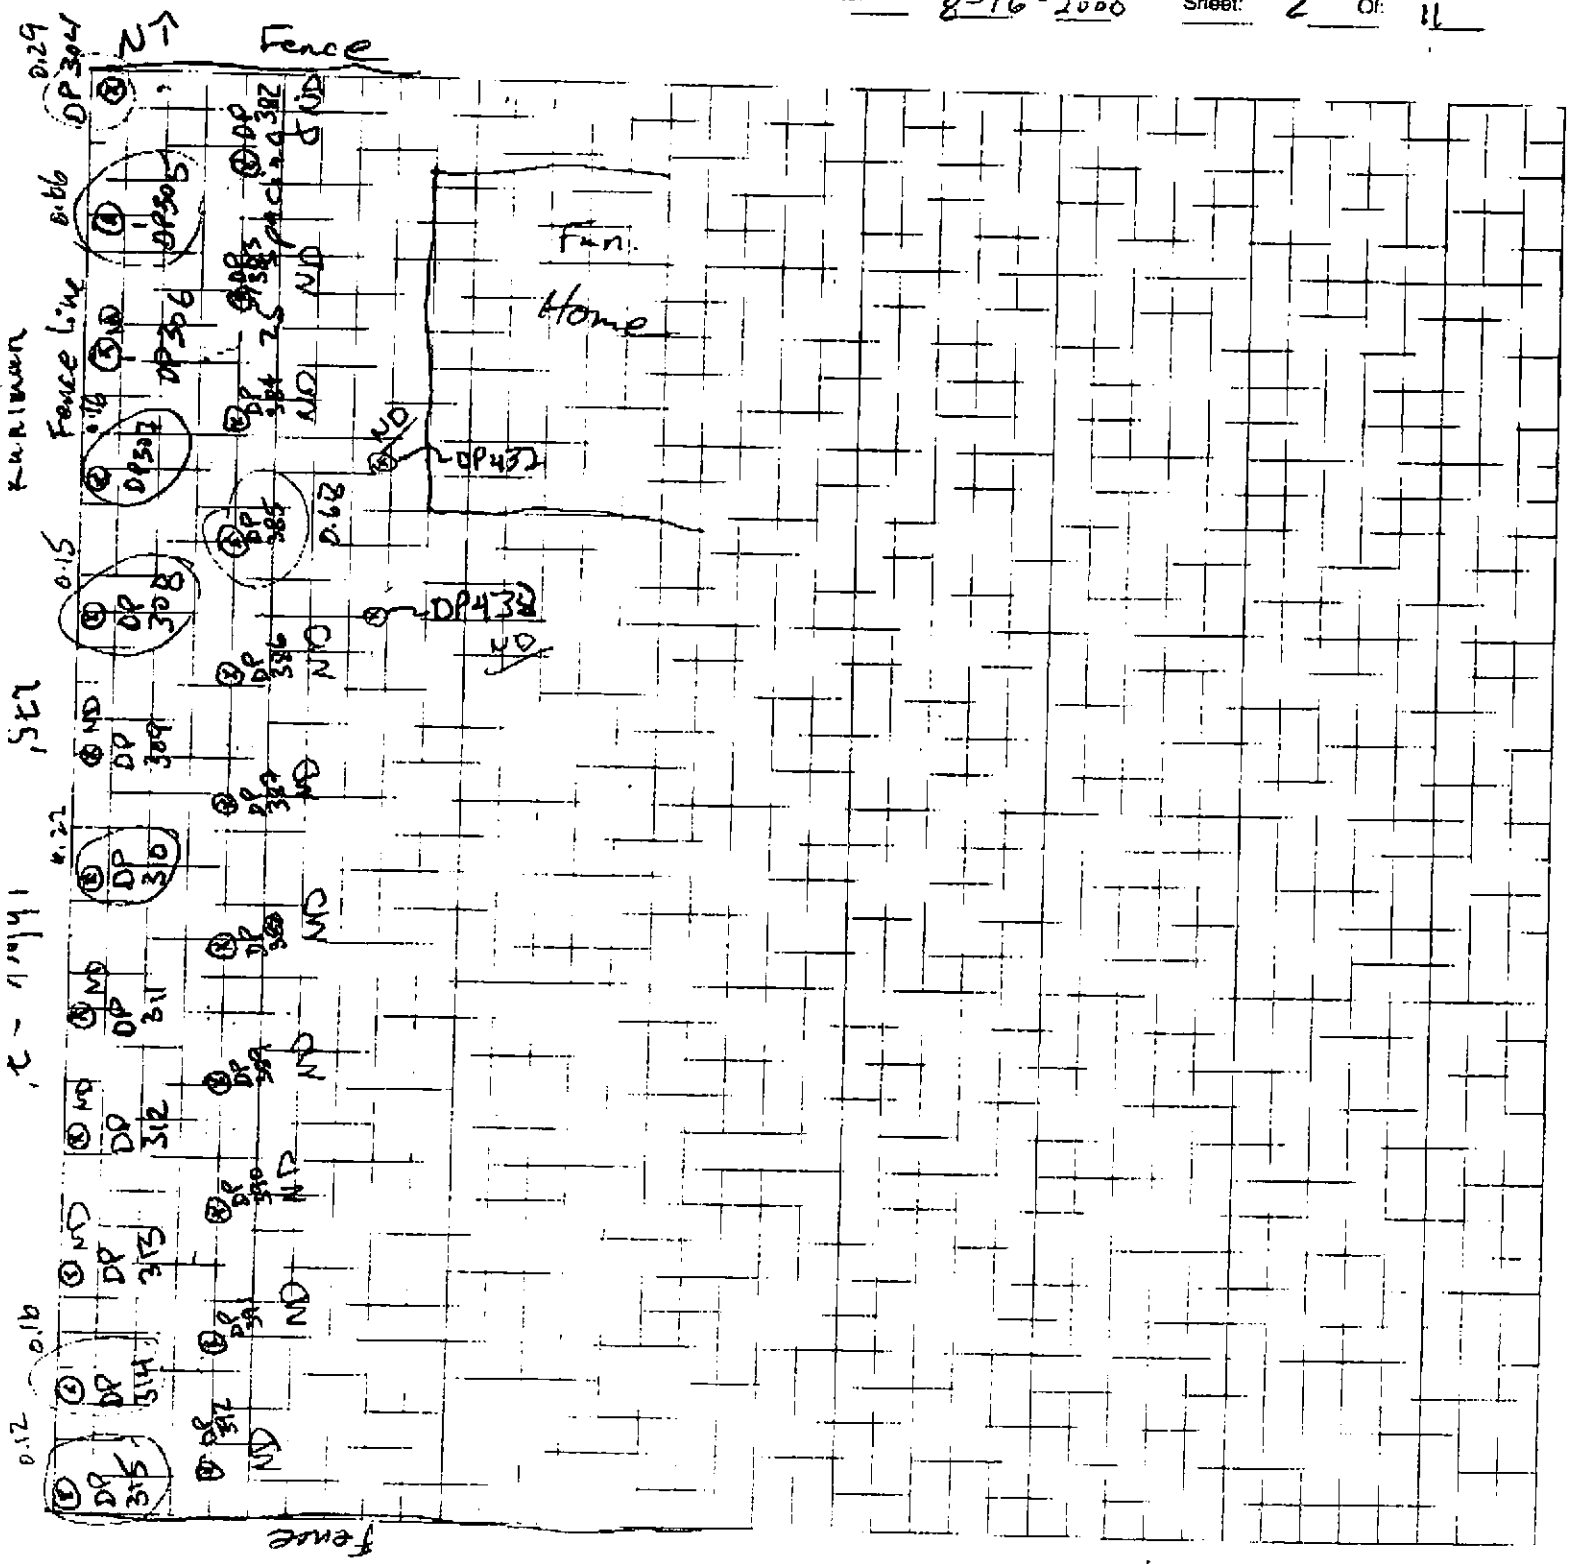 8-16-2000 Sheet: 2 Of: 11
N
Fence
0.29
DP304
DP305
Fence Line
ND
DP306
0.16
DP307
0.15
DP
308
ND
DP
309
0.22
DP
310
ND
DP
311
ND
DP
312
ND
DP
313
0.16
DP
314
0.12
DP
315
DP
382
ND
25 spacing
DP
383
ND
DP
384
ND
DP
385
0.68
DP
386
ND
DP
387
ND
DP
ND
DP
389
ND
DP
390
ND
DP
391
ND
DP
392
ND
ND
DP432
DP433
ND
Fun.
Home
Fence